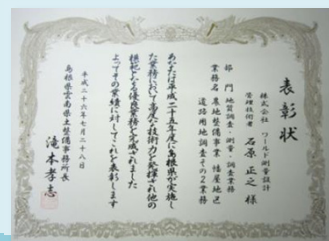 表彰状
株式会社 ワールド測量設計
管理技術者 石原正之 様
部門 地質調査・測量・調査業務
業務名 農地整備事業 幡屋地区
道路用地調査その2業務
あなたは平成二十五年度に島根県が実施し
た業務において高度な技術力を発揮され他の
模範となる優良業務を完成されました
よってその業績に対してこれを表彰します
平成二十六年七月二十八日
島根県雲南県土整備事務所長
滝本孝志